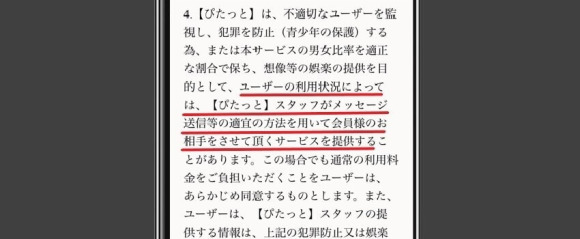 4.【ぴたっと】は、不適切なユーザーを監
視し、犯罪を防止（青少年の保護）する
為、または本サービスの男女比率を適正
な割合で保ち、想像等の娯楽の提供を目
的として、ユーザーの利用状況によって
は、【ぴたっと】スタッフがメッセージ
送信等の適宜の方法を用いて会員様のお
相手をさせて頂くサービスを提供するこ
とがあります。この場合でも通常の利用料
金をご負担いただくことをユーザーは、
あらかじめ同意するものとします。また、
ユーザーは、【ぴたっと】スタッフの提
供する情報は、上記の犯罪防止又は娯楽